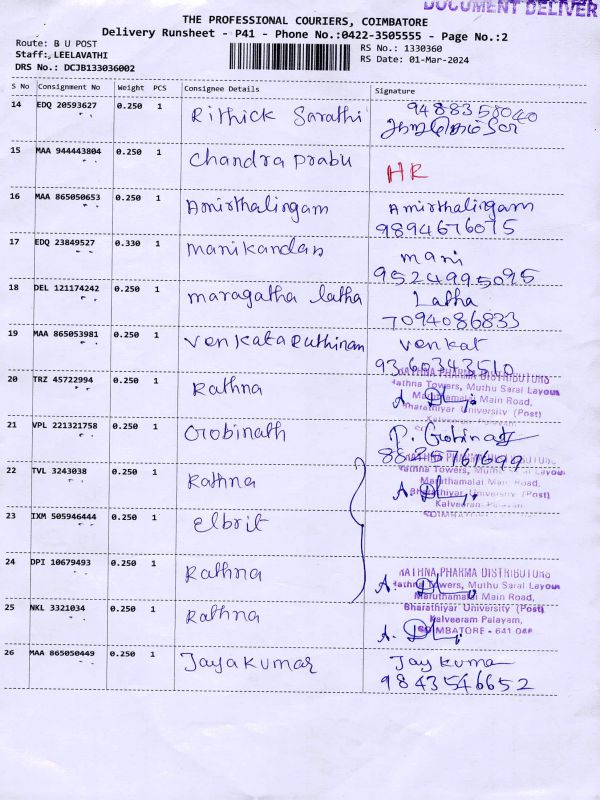 DOCUMENT DELIVER
THE PROFESSIONAL COURIERS, COIMBATORE
Delivery Runsheet - P41 - Phone No.:0422-3505555 - Page No.:2
Route: B U POST
Staff:,LEELAVATHI
DRS No.: DCJB133036002
RS No.: 1330360
RS Date: 01-Mar-2024
S No Consignment No Weight PCS Consignee Details Signature
14 EDQ 20593627 0.250 1 Rithick Sarathi 9488358040
15 MAA 944443804 0.250 1 Chandra prabu HR
16 MAA 865050653 0.250 1 Amirthalingam Amirthalingam
9894676075
17 EDQ 23849527 0.330 1 Manikandan mani
9524995095
18 DEL 121174242 0.250 1 maragatha latha Latha
7094086833
19 MAA 865053981 0.250 1 Venkata Rathinam Venkat
9360343510
20 TRZ 45722994 0.250 1 Rathna
RATHNA PHARMA DISTRIBUTORS
Rathna Towers, Muthu Saral Layout
Maruthamalai Main Road,
Bharathiyar University (Post)
21 VPL 221321758 0.250 1 Gobinath P. Gobinath
8825761699
22 TVL 3243038 0.250 1 Rathna
Rathna Towers, Muthu Saral Layou
Maruthamalai Main Road,
Bharathiyar University (Post)
Kalveeram Palayam
23 IXM 505946444 0.250 1 Elbrit
24 DPI 10679493 0.250 1 Rathna
RATHNA PHARMA DISTRIBUTORS
Rathna Towers, Muthu Saral Layou
Maruthamalai Main Road,
25 NKL 3321034 0.250 1 Rathna
Bharathiyar University (Post)
Kalveeram Palayam,
COIMBATORE - 641 046
26 MAA 865050449 0.250 1 Jayakumar Jaykuma
9843546652